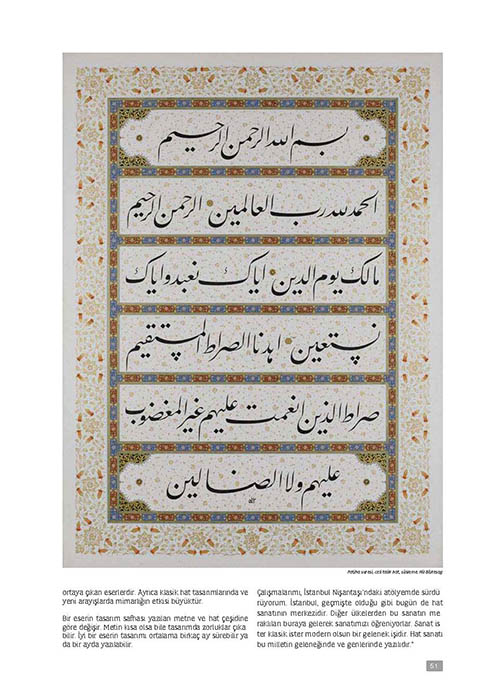 بسم الله الرحمن الرحيم
الحمد لله رب العالمين الرحمن الرحيم
مالك يوم الدين اياك نعبد و اياك
نستعين اهدنا الصراط المستقيم
صراط الذين انعمت عليهم غير المغضوب
عليهم ولا الضالين
Fatiha suresi, celi talik hat,
ortaya çıkan eserlerdir. Ayrıca klasik hat tasarımlarında ve
yeni arayışlarda mimarlığın etkisi büyüktür.
Bir eserin tasarım safhası yazılan metne ve hat çeşidine
göre değişir. Metin kısa olsa bile tasarımda zorluklar çıka
bilir. İyi bir eserin tasarımı ortalama birkaç ay sürebilir ya
da bir ayda yazılabilir.
Çalışmalarımı, İstanbul Nişantaşı'ndaki atölyemde sürdü
rüyorum. İstanbul, geçmişte olduğu gibi bugün de hat
sanatının merkezidir. Diğer ülkelerden bu sanatın me
raklıları buraya gelerek sanatımızı öğreniyorlar. Sanat is
ter klasik ister modern olsun bir gelenek işidir. Hat sanatı
bu milletin geleneğinde ve genlerinde yazılıdır."
51